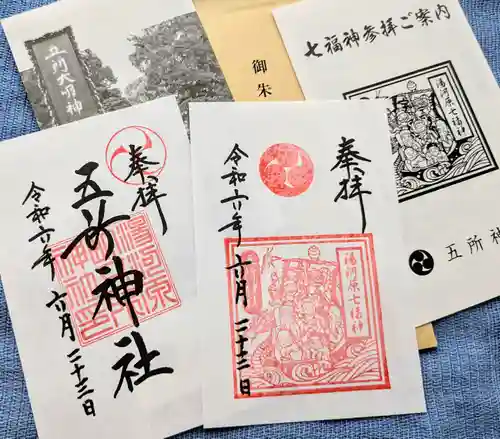 五所大明神
御朱
七福神参拝ご案内
湯河原七福神
五所神
奉拝
五所神社
令和六年 六月 二十三日
奉拝
湯河原七福神
令和六年 六月 二十三日